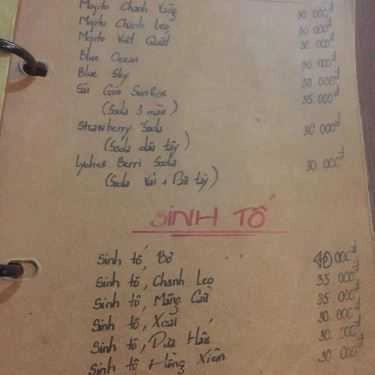 Mojito Chanh Vàng 30 000đ
Mojito Chanh Leo 30 000đ
Mojito Việt Quất 30 000đ
Blue Ocean 30 000đ
Blue Sky 30 000đ
Sài Gòn SunRise 35 000đ
(Soda 3 màu)
Strawberry Soda 30 000đ
(Soda dâu tây)
Lychee Berri Soda 30 000đ
(Soda Vải + Dâu tây)
SINH TỐ
Sinh tố Bơ 40 000đ
Sinh tố Chanh Leo 35 000đ
Sinh tố Mãng Cầu 35 000đ
Sinh tố Xoài 30 000đ
Sinh tố Dưa Hấu 30 000đ
Sinh tố Hồng Xiêm 30 000đ